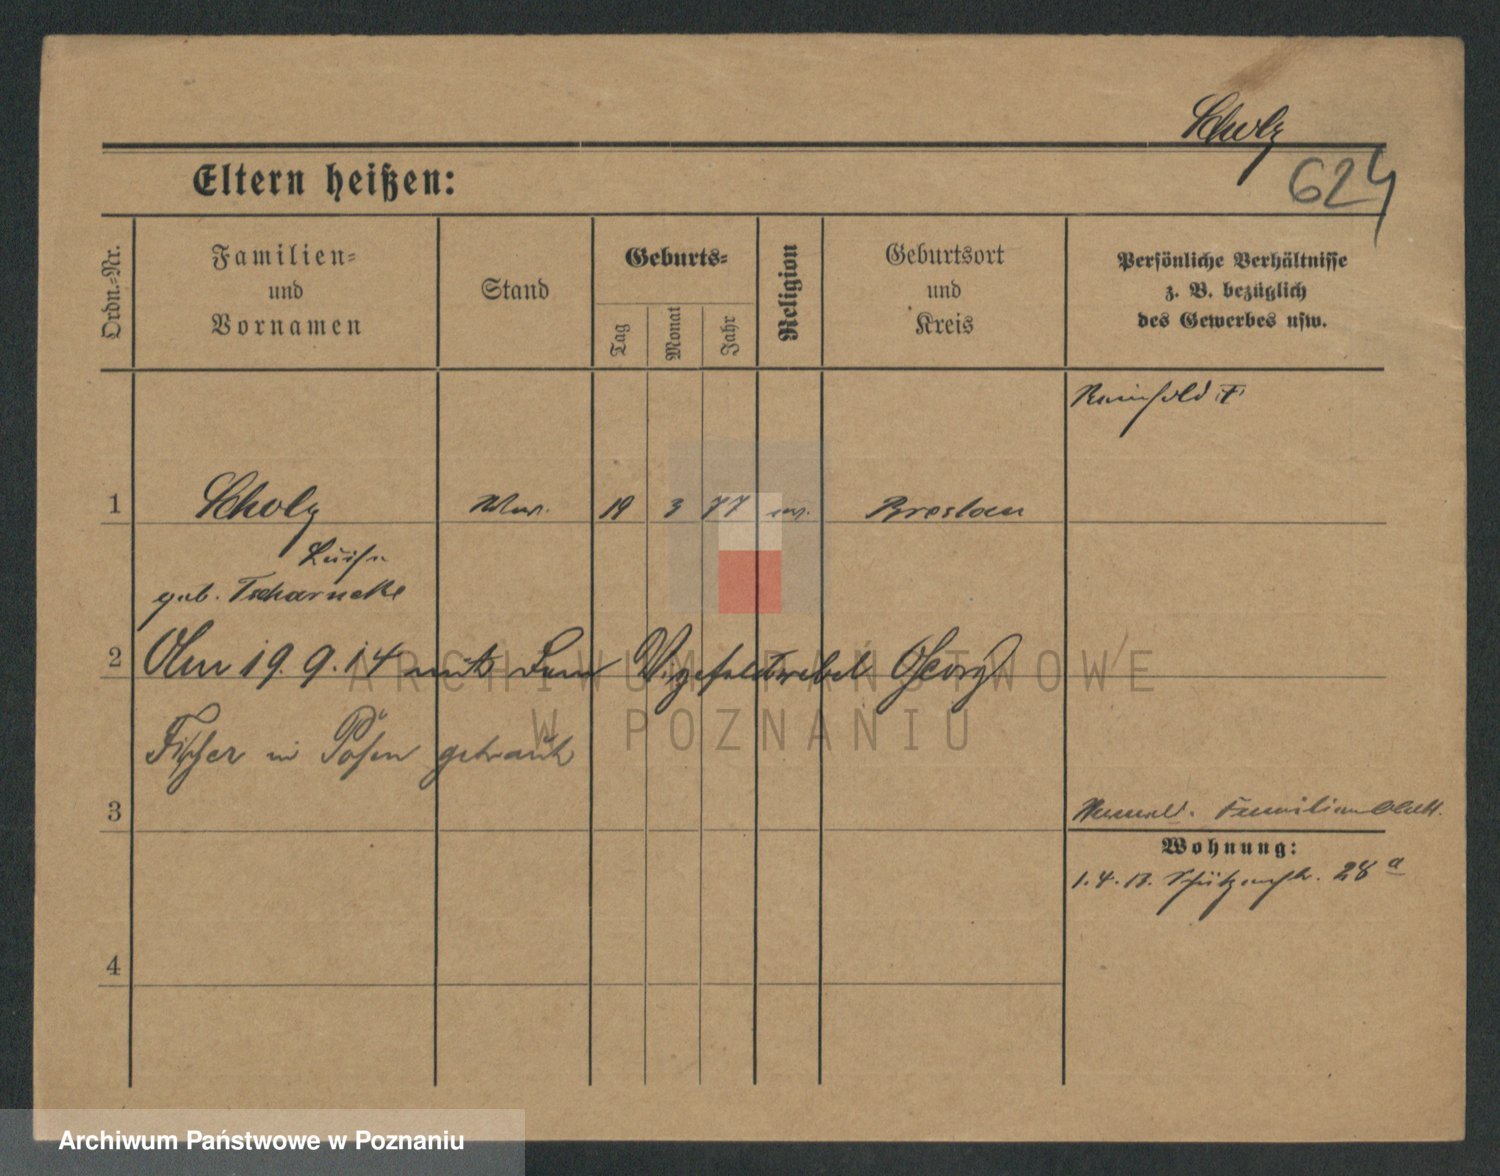 Scholz
624
Eltern heißen:
Ordn.-Nr.
Familien-
und
Vornamen
Stand
Geburts-
Tag
Monat
Jahr
Religion
Geburtsort
und
Kreis
Persönliche Verhältnisse
z. B. bezüglich
des Gewerbes usw.
Reinhold †
1 Scholz Wwe. 19 3 77 ev. Breslau
Luise
geb. Tscharncke
2 Am 19. 9. 14 mit dem Vizefeldwebel Georg
Fischer in Posen getraut
3
Familienblatt.
Wohnung:
1.4.13. Schützenstr. 28a
4
ARCHIWUM PAŃSTWOWE
W POZNANIU
Archiwum Państwowe w Poznaniu